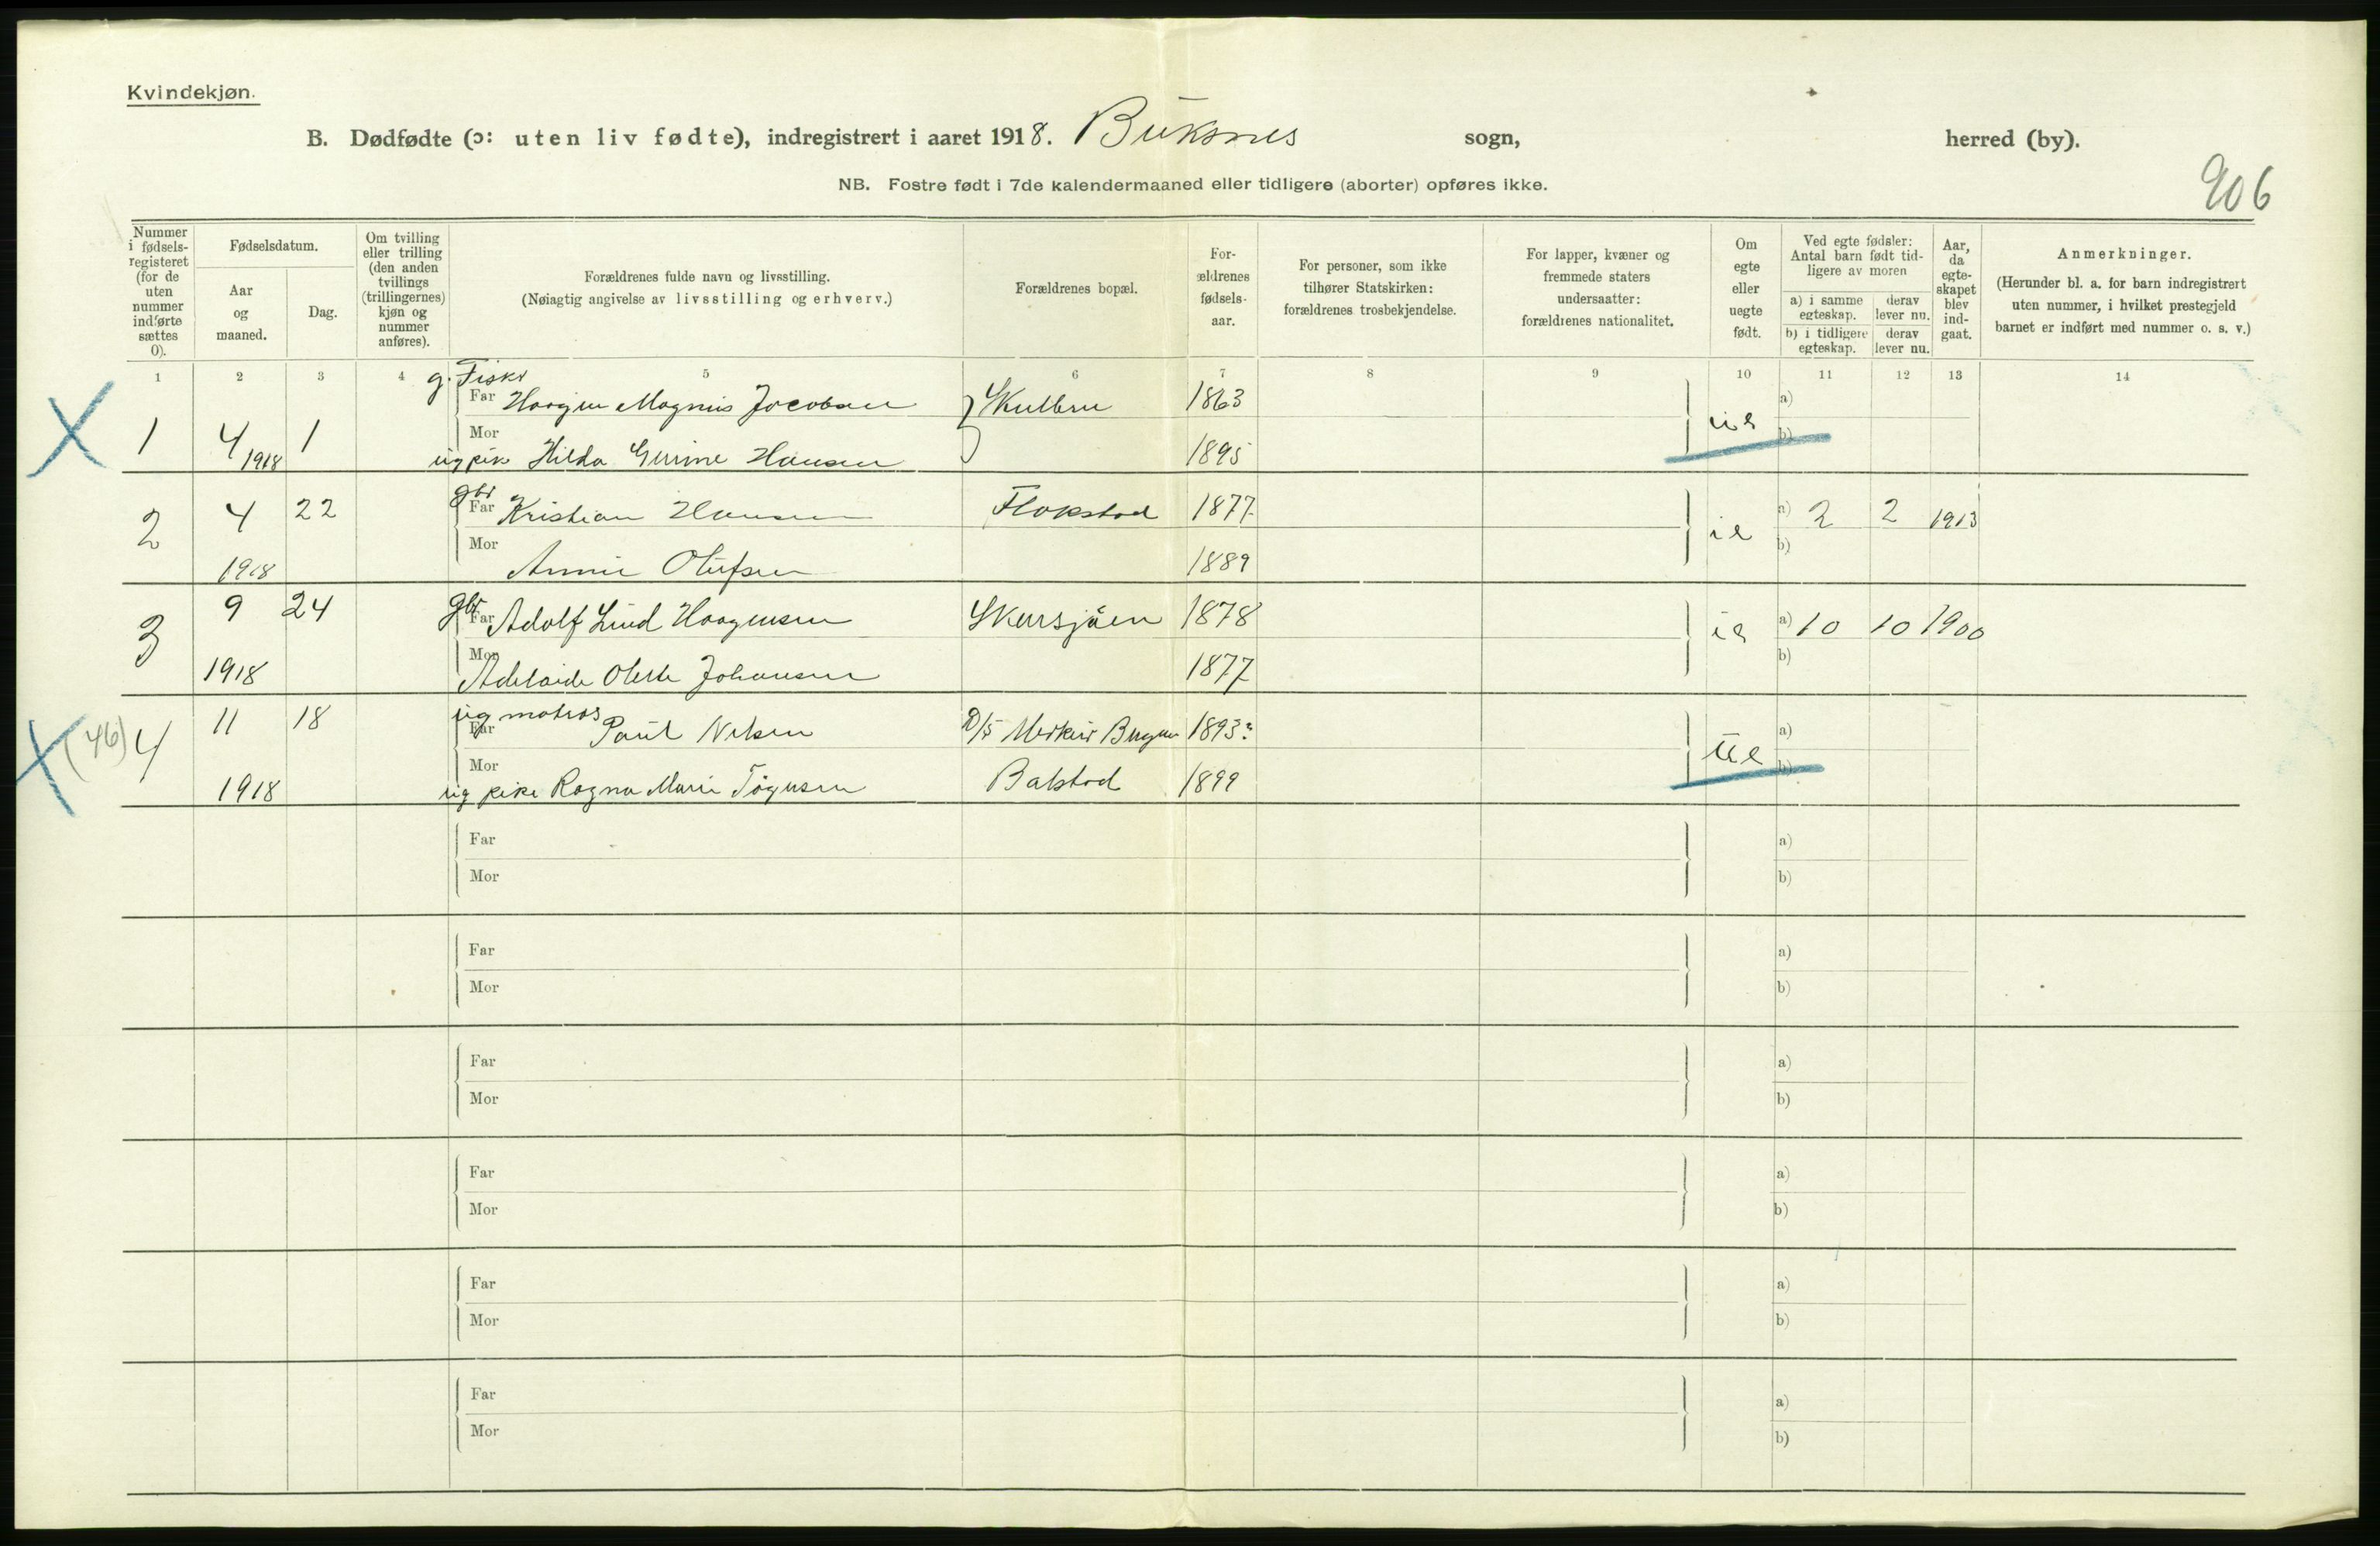 Kvindekjøn.
B. Dødfødte (ɔ: uten liv fødte), indregistrert i aaret 1918. Buksnes sogn, herred (by).
NB. Fostre født i 7de kalendermaaned eller tidligere (aborter) opføres ikke.
906
Nummer i fødsels-registeret (for de uten nummer indførte sættes 0).
Fødselsdatum.
Aar og maaned.
Dag.
Om tvilling eller trilling (den anden tvillings (trillingernes) kjøn og nummer anføres).
Forældrenes fulde navn og livsstilling.
(Nøiagtig angivelse av livsstilling og erhverv.)
Forældrenes bopæl.
For-ældrenes fødsels-aar.
For personer, som ikke tilhører Statskirken: forældrenes trosbekjendelse.
For lapper, kvæner og fremmede staters undersaatter: forældrenes nationalitet.
Om egte eller uegte født.
Ved egte fødsler: Antal barn født tid-ligere av moren
a) i samme egteskap. derav lever nu.
b) i tidligere egteskap. derav lever nu.
Aar, da egte-skapet blev ind-gaat.
Anmerkninger.
(Herunder bl. a. for barn indregistrert uten nummer, i hvilket prestegjeld barnet er indført med nummer o. s. v.)
1 2 3 4 5 6 7 8 9 10 11 12 13 14
g. Fisker
X 1 4 1 Far Haagen Magnus Jacobsen 1863 a)
1918 Mor ug pike Hilda Hansen 1895 b)
gbr
2 4 22 Far Kristian Hansen Flakstad 1877 ie a) 2 2 1913
1918 Mor Annie Olufsen 1889 b)
gbr
3 9 24 Far Adolf Lind Haagensen 1878 ie a) 10 10 1900
1918 Mor Adelaide Johansen 1877 b)
ug matros
X (46) 4 11 18 Far Paul Nilsen D/S Merkur Bergen 1893? ue a)
1918 Mor ug pike Ragna Marie Balstad 1899 b)
Far a)
Mor b)
Far a)
Mor b)
Far a)
Mor b)
Far a)
Mor b)
Far a)
Mor b)
Far a)
Mor b)